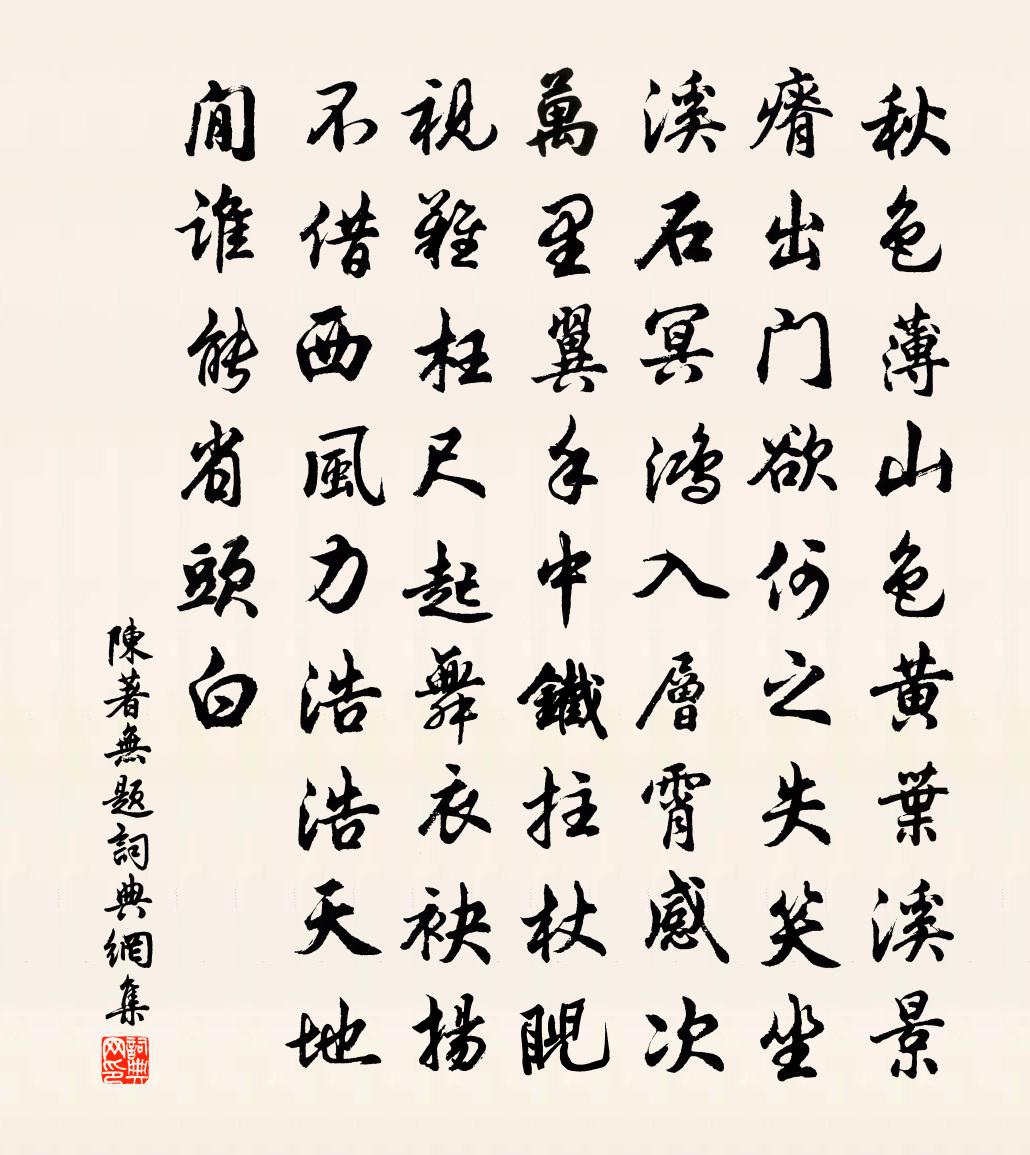 秋色薄山色黃葉溪景
瘠出門欲何之失笑坐
溪石冥鴻入層霄感次
萬里翼手中鐵拄杖睨
視難枉尺起舞衣袂揚
不借西風力浩浩天地
間誰能省頭白
陳著無題詞典網集
詞典网印